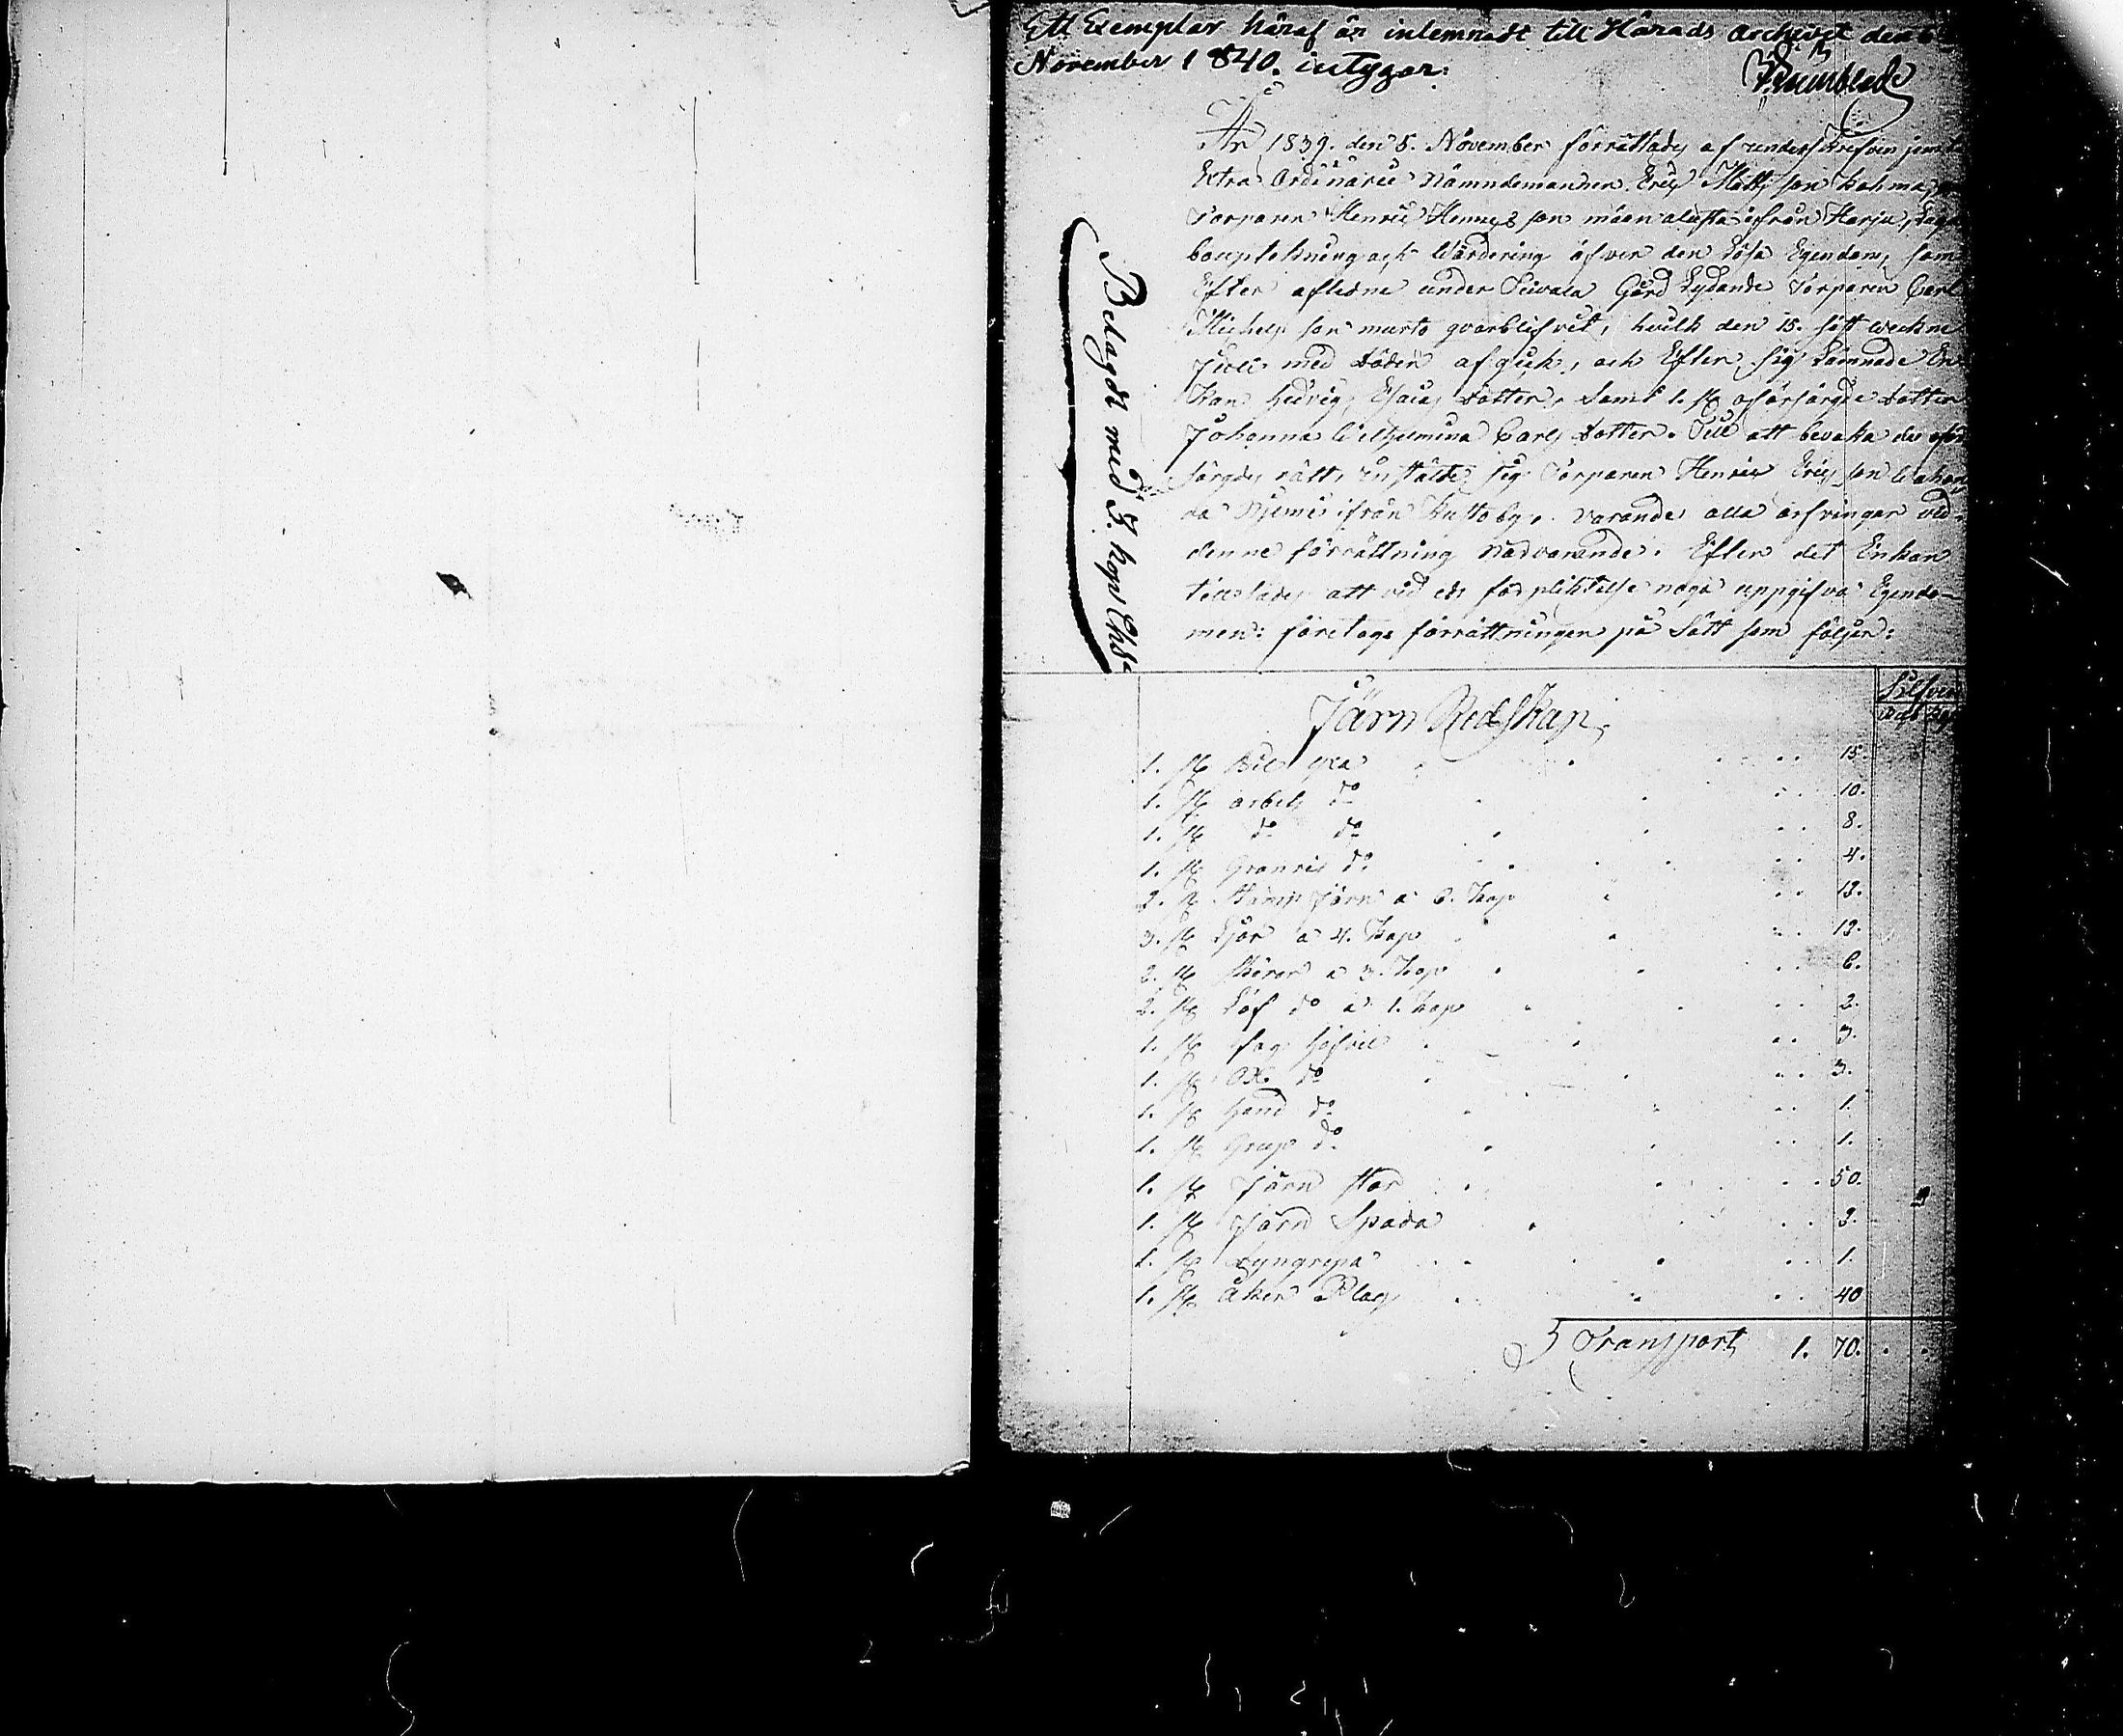 Ett Exemplar häraf är inlemnadt till Härads Archivet den
November 1840. intygar:
År 1839. den 8. November förrättades af underskrefven jemte
Extra Ordinarie Nämndemannen Erics Matts son
Torparen Henric Henrics son ifrån Harju,
bouptekning och Wärdering öfver den Lösa Egendom, som
Efter afledne under Gård Lydande Torparen Carl
Michels son murto qvarblifvit, hvilk den 15. sistl weckne
Juli med döden afgick, och Efter sig Lämnade En-
kan Hedvig Esaias dotter, Samt 1. st oförsörgde dotter
Johanna Wilhelmina Carls dotter. Till att bevaka de oför-
sörgdes rätt, instälte sig Torparen Henric Erics son
Niemi ifrån by. varande alla arfvingar vid
denne förrättning närvarande. Efter det Enkan
tillsades att vid eds förpliktelse noga uppgifva Egendo-
men: företogs förrättningen på Sätt som följer:
Belagdt med 3. kop Chts
Silfver
Rub Kop
Järn Redskap
1. st Bil yxa 15.
1. st arbets do 10.
1. st do do 8.
1. st Granris do 4.
2. st Järn a 6. kop 12.
3. st Ljor a 4. kop 12.
2. st Skäror a 3. kop 6.
2. st Löf do a 1. kop 2.
1. st höfvel 3.
1. st do 3.
1. st hand do 1.
1. st Grop do 1.
1. st Järn stor 50.
1. st Järn Spada 3.
1. st Dyngrepa 1.
1. st åker Plog 40
Transport 1. 70.